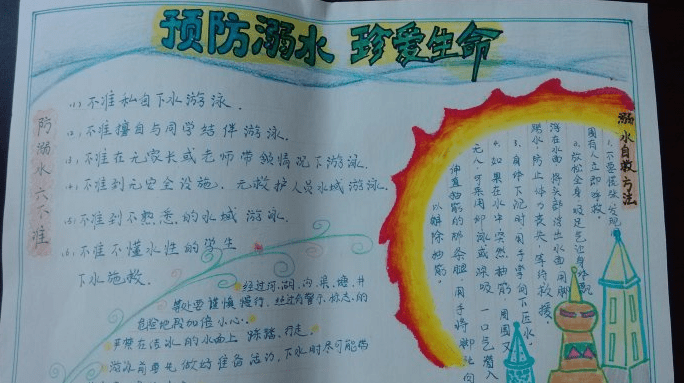 预防溺水 珍爱生命
防溺水六不准
(1)不准私自下水游泳.
(2)不准擅自与同学结伴游泳.
(3)不准在无家长或老师带领情况下游泳.
(4)不准到无安全设施、无救护人员水域游泳.
(5)不准到不熟悉的水域游泳.
(6)不准不懂水性的学生
下水施救.
经过河、湖、沟、渠、塘、井
等处要谨慎慢行,经过有警示标志的
危险地段加倍小心.
在结冰的水面上 行走.
游泳前要先做好准备活动,下水时尽可能
溺水自救方法
1、不要慌张,发现
周围有人立即呼救。
2、放松全身,
浮在水面 将头部浮出水面 用脚
踢水,防止体力丧失,等待救援。
3、身体下沉时,用手掌向下压水.
4、如果在水中突然抽筋,周围又
无人,可采用仰泳或深吸一口气潜入
伸直抽筋的那条腿 用手将脚趾向
以解除抽筋。